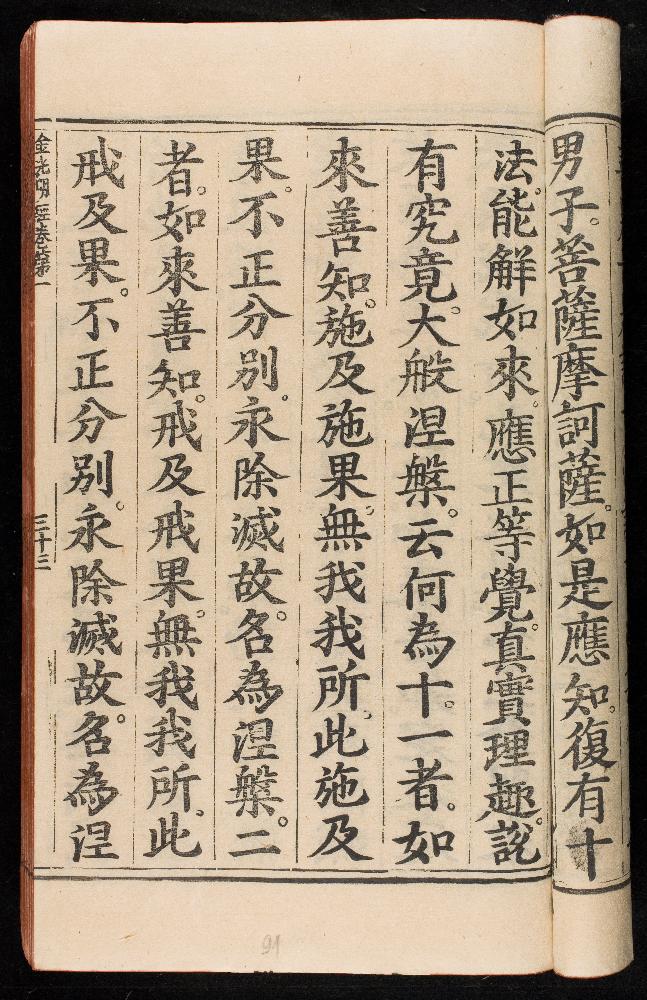 男子。菩薩摩訶薩。如是應知。復有十
法。能解如來。應正等覺。真實理趣。說
有究竟。大般涅槃。云何為十。一者。如
來善知。施及施果。無我我所、此施及
果。不正分別。永除滅故。名為涅槃。二
者。如來善知。戒及戒果。無我我所、此
戒及果。不正分別。永除滅故。名為涅
金光明經卷第一
三十三
91